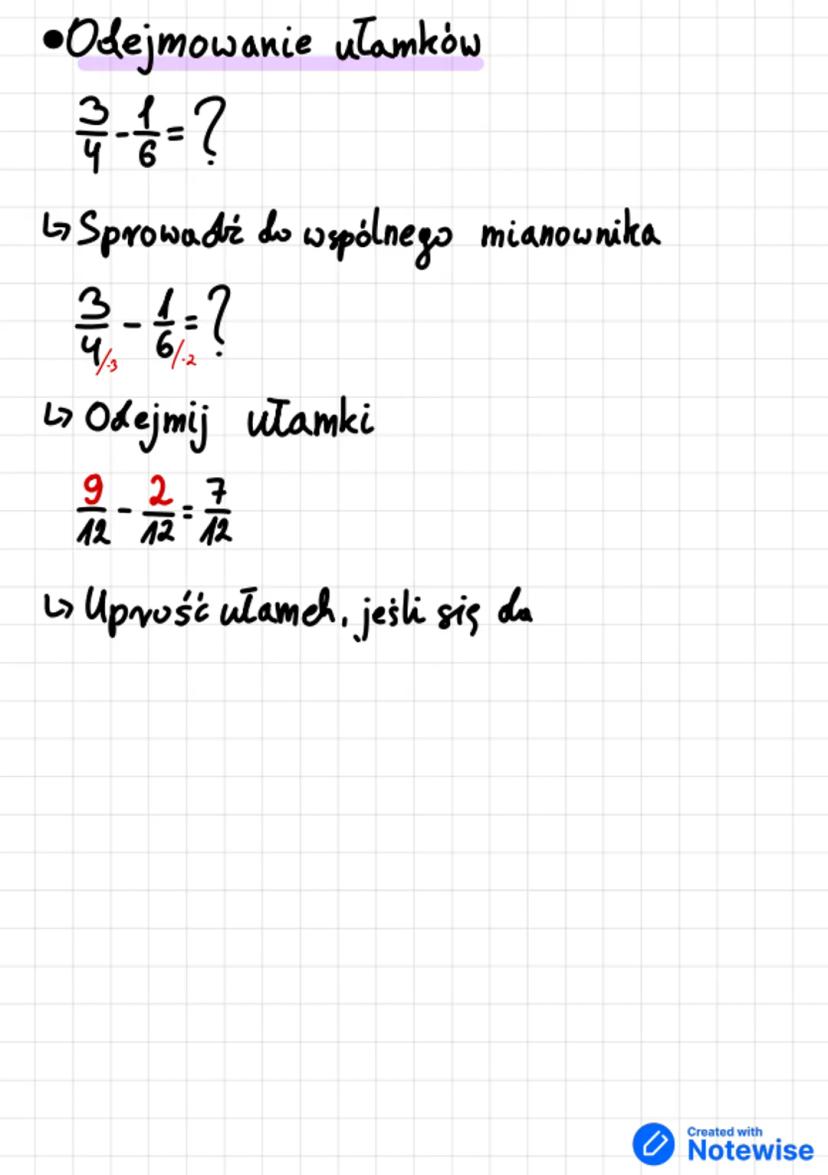 •Odejmowanie ułamków
3/4 - 1/6 = ?
↳ Sprowadź do wspólnego mianownika
3/4/·3 - 1/6/·2 = ?
↳ Odejmij ułamki
9/12 - 2/12 = 7/12
↳ Uprość ułamek, jeśli się da
Created with
Notewise